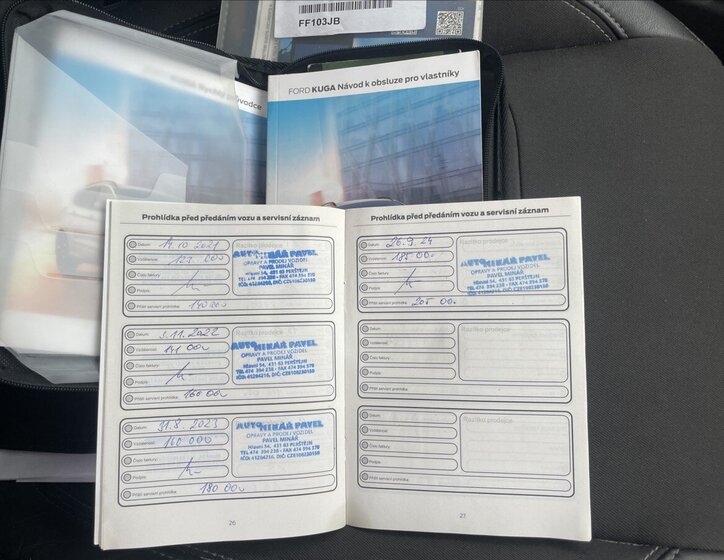 FF103JB
FORD KUGA Návod k obsluze pro vlastníky
Prohlídka před předáním vozu a servisní záznam
Datum: 14.10 2021
Razítko prodejce
Vzdálenost: 123 000
Číslo faktury:
Podpis:
Příští servisní prohlídka: 140 000
AUTO MINÁŘ PAVEL
OPRAVY A PRODEJ VOZIDEL
PAVEL MINÁŘ
Hlavní 54, 431 63 PERŠTEJN
TEL 474 394 238 - FAX 474 394 378
IČO: 41284216, DIČ: CZ6108230150
Datum: 3.11.2022
Razítko prodejce
Vzdálenost: 141 000
Číslo faktury:
Podpis:
Příští servisní prohlídka: 160 000
AUTO MINÁŘ PAVEL
OPRAVY A PRODEJ VOZIDEL
PAVEL MINÁŘ
Hlavní 54, 431 63 PERŠTEJN
TEL 474 394 238 - FAX 474 394 378
IČO: 41284216, DIČ: CZ6108230150
Datum: 31.8.2023
Vzdálenost: 160 000
Číslo faktury:
Podpis:
Příští servisní prohlídka: 180 000
AUTO MINÁŘ PAVEL
OPRAVY A PRODEJ VOZIDEL
PAVEL MINÁŘ
Hlavní 54, 431 63 PERŠTEJN
TEL 474 394 238 - FAX 474 394 378
IČO: 41284216, DIČ: CZ6108230150
26
Prohlídka před předáním vozu a servisní záznam
Datum: 26.9.24
Razítko prodejce
Vzdálenost: 185 000
Číslo faktury:
Podpis:
Příští servisní prohlídka: 205 000
AUTO MINÁŘ PAVEL
OPRAVY A PRODEJ VOZIDEL
PAVEL MINÁŘ
Hlavní 54, 431 63 PERŠTEJN
TEL 474 394 238 - FAX 474 394 378
IČO: 41284216, DIČ: CZ6108230150
Datum:
Razítko prodejce
Vzdálenost:
Číslo faktury:
Podpis:
Příští servisní prohlídka:
Datum:
Razítko prodejce
Vzdálenost:
Číslo faktury:
Podpis:
Příští servisní prohlídka:
27